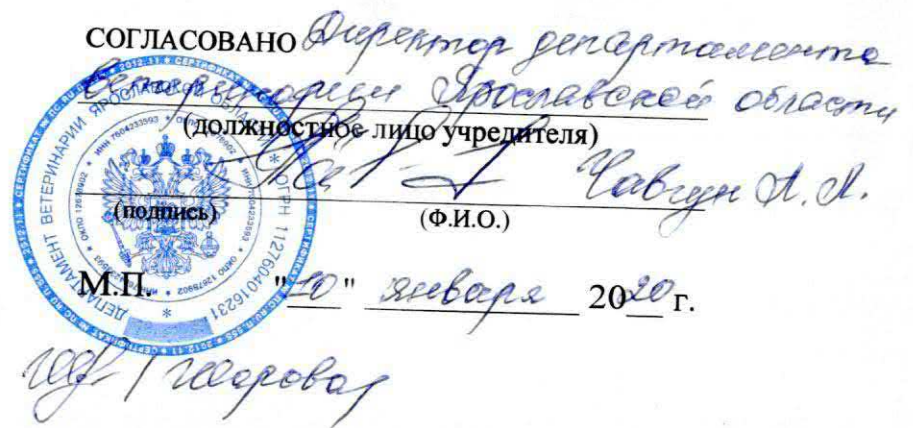 СОГЛАСОВАНО Директор департамента
ветеринарии Ярославской области
(должностное лицо учредителя)
Чавгун А. А.
(подпись) (Ф.И.О.)
М.П. "10" января 2020 г.
ДЕПАРТАМЕНТ ВЕТЕРИНАРИИ ЯРОСЛАВСКОЙ ОБЛАСТИ * ОГРН 1127604016231 *
ИНН 7604233593 * ОКПО 12678902